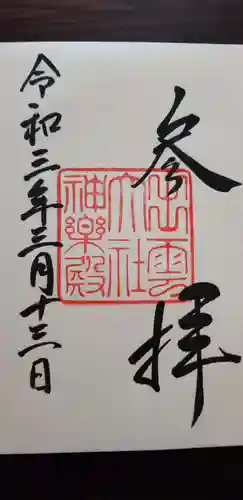 参拝
出雲大社神楽殿
令和三年三月十三日